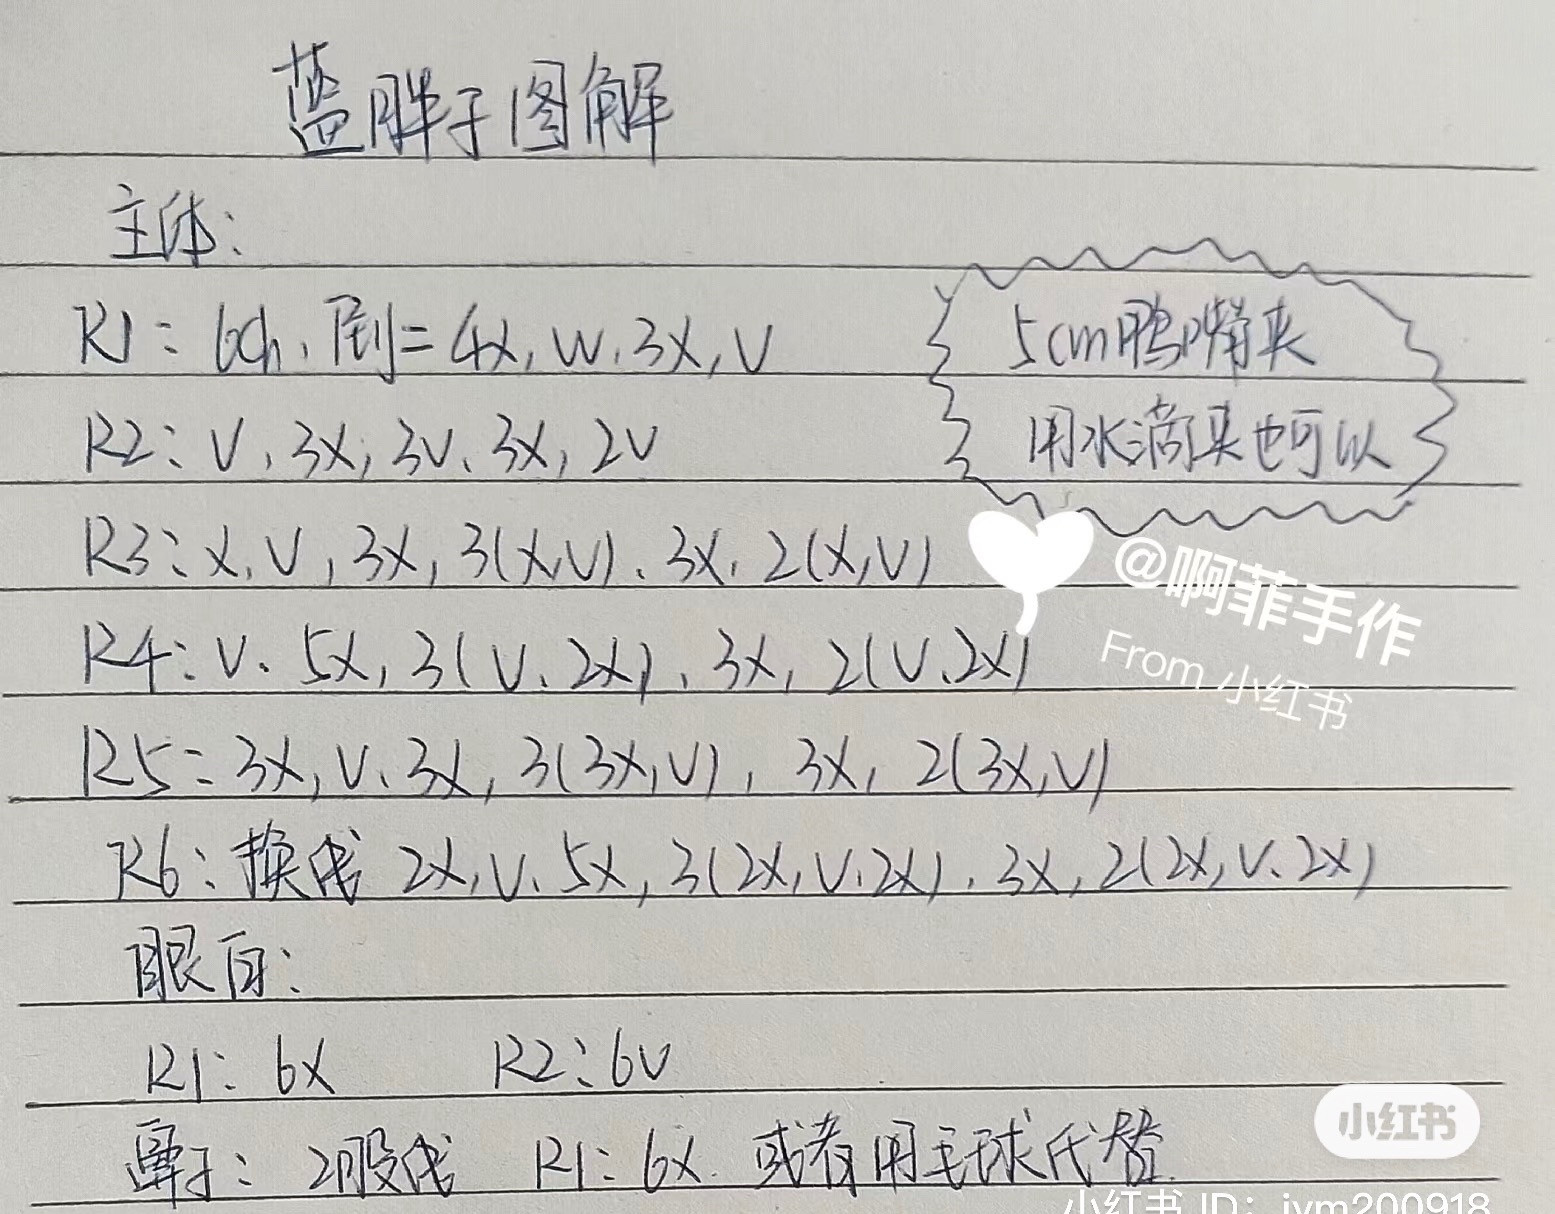 蓝胖子图解
主体:
R1: 6ch, 倒=4X, W, 3X, V
5cm鸭嘴夹
R2: V, 3X, 3V, 3X, 2V
用水滴夹也可以
R3: X, V, 3X, 3(X,V), 3X, 2(X,V)
@啊菲手作
R4: V, 5X, 3(V, 2X), 3X, 2(V, 2X)
From 小红书
R5: 3X, V, 3X, 3(3X,V), 3X, 2(3X,V)
R6: 换线 2X, V, 5X, 3(2X, V, 2X), 3X, 2(2X, V, 2X)
眼白:
R1: 6X R2: 6V
小红书
鼻子: 2股线 R1: 6X. 或者用毛球代替.
小红书 ID: jym200918